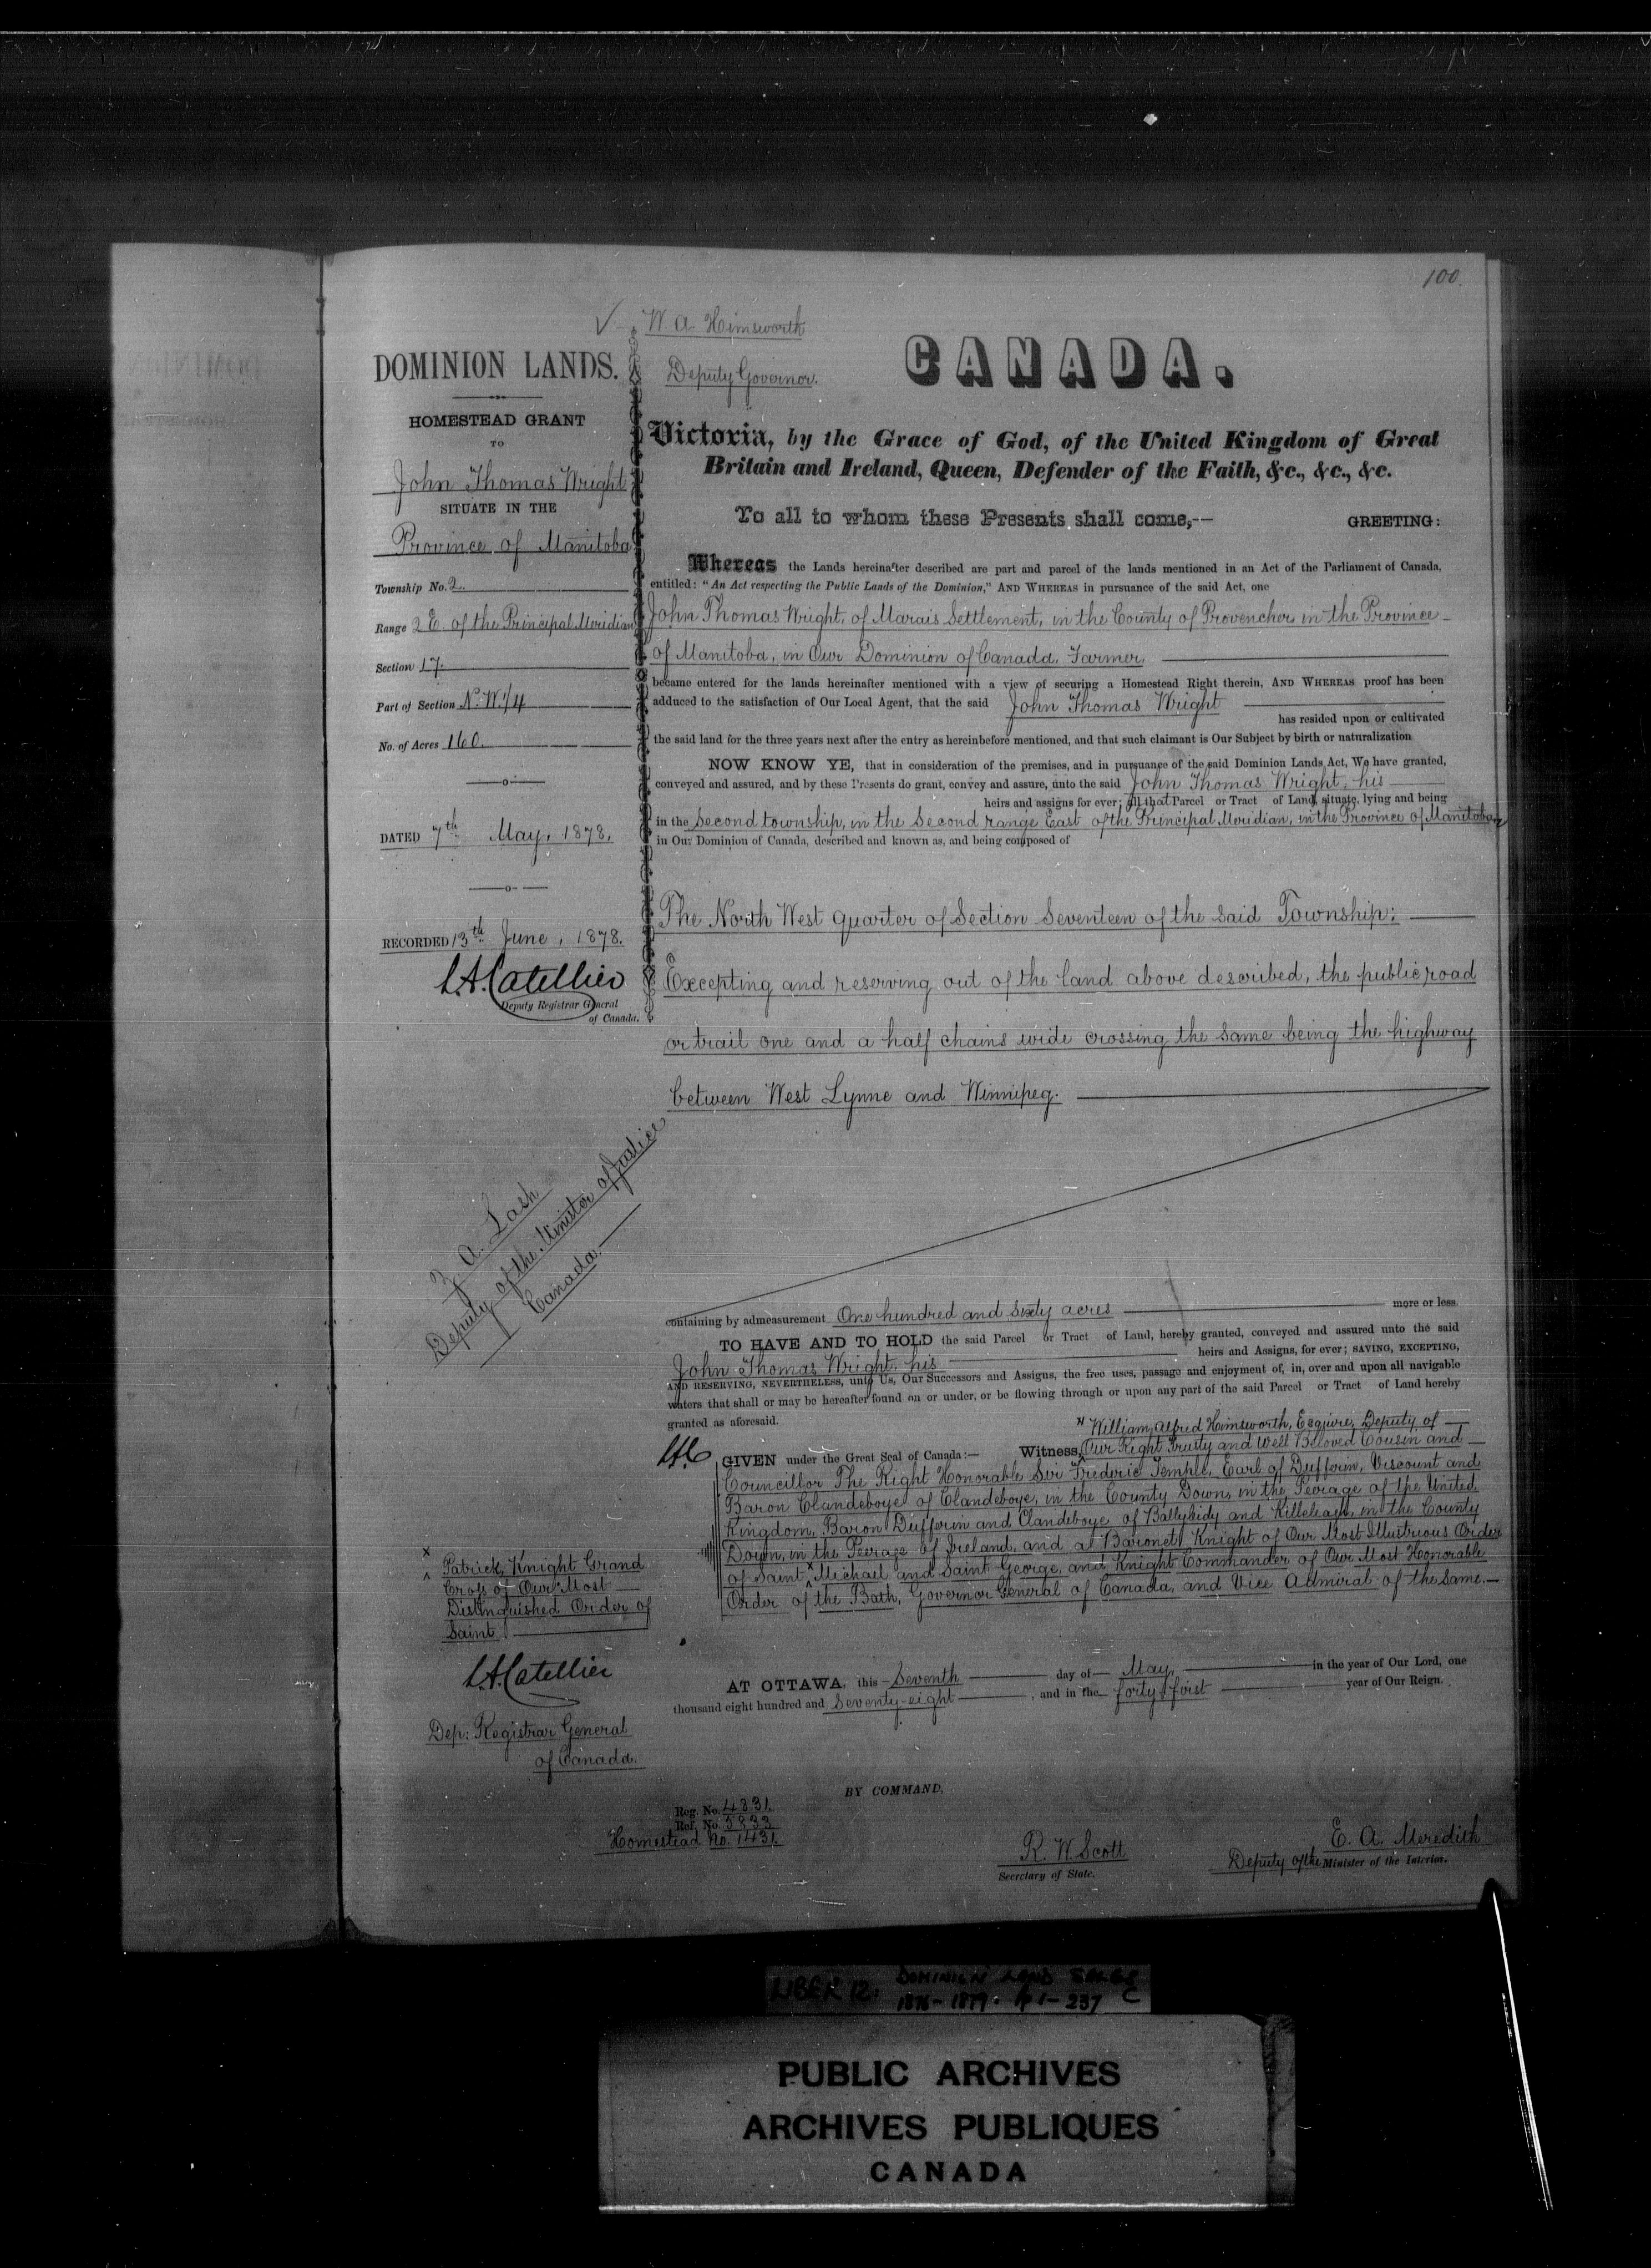 100.
W. A. Himsworth
Deputy Governor.
DOMINION LANDS.
HOMESTEAD GRANT
TO
John Thomas Wright
SITUATE IN THE
Province of Manitoba
Township No. 2.
Range 2 E. of the Principal Meridian
Section 17.
Part of Section N. W. 1/4
No. of Acres 160.
DATED 7th May, 1878.
RECORDED 13th June, 1878.
L.A. Catellier
Deputy Registrar General
of Canada.
Z. A. Lash
Deputy of the Minister of Justice
Canada.
CANADA.
Victoria, by the Grace of God, of the United Kingdom of Great
Britain and Ireland, Queen, Defender of the Faith, &c., &c., &c.
To all to whom these Presents shall come,--
GREETING:
Whereas the Lands hereinafter described are part and parcel of the lands mentioned in an Act of the Parliament of Canada,
entitled: "An Act respecting the Public Lands of the Dominion," AND WHEREAS in pursuance of the said Act, one
John Thomas Wright, of Marais Settlement, in the County of Provencher in the Province
of Manitoba, in Our Dominion of Canada, Farmer,
became entered for the lands hereinafter mentioned with a view of securing a Homestead Right therein, AND WHEREAS proof has been
adduced to the satisfaction of Our Local Agent, that the said John Thomas Wright
has resided upon or cultivated
the said land for the three years next after the entry as hereinbefore mentioned, and that such claimant is Our Subject by birth or naturalization
NOW KNOW YE, that in consideration of the premises, and in pursuance of the said Dominion Lands Act, We have granted,
conveyed and assured, and by these Presents do grant, convey and assure, unto the said John Thomas Wright, his
heirs and assigns for ever; all that Parcel or Tract of Land, situate, lying and being
in the Second township, in the Second range East of the Principal Meridian, in the Province of Manitoba,
in Our Dominion of Canada, described and known as, and being composed of
The North West quarter of Section Seventeen of the said Township:
Excepting and reserving out of the land above described, the public road
or trail one and a half chains wide crossing the same being the highway
between West Lynne and Winnipeg.
containing by admeasurement One hundred and sixty acres more or less.
TO HAVE AND TO HOLD the said Parcel or Tract of Land, hereby granted, conveyed and assured unto the said
John Thomas Wright, his heirs and Assigns, for ever; SAVING, EXCEPTING,
AND RESERVING, NEVERTHELESS, unto Us, Our Successors and Assigns, the free uses, passage and enjoyment of, in, over and upon all navigable
waters that shall or may be hereafter found on or under, or be flowing through or upon any part of the said Parcel or Tract of Land hereby
granted as aforesaid.
William Alfred Himsworth, Esquire, Deputy of
GIVEN under the Great Seal of Canada:— Witness, Our Right Trusty and Well Beloved Cousin and
Councillor The Right Honorable Sir Frederic Temple, Earl of Dufferin, Viscount and
Baron Clandeboye of Clandeboye, in the County Down, in the Peerage of the United
Kingdom, Baron Dufferin and Clandeboye of Ballyleidy and Killeleagh, in the County
Down, in the Peerage of Ireland, and a Baronet, Knight of Our Most Illustrious Order
of Saint x Michael and Saint George, and Knight Commander of Our Most Honorable
Order of the Bath, Governor General of Canada, and Vice Admiral of the same.
x Patrick, Knight Grand
Cross of Our Most
Distinguished Order of
Saint
L.A. Catellier
Dep: Registrar General
of Canada.
AT OTTAWA, this Seventh day of May, in the year of Our Lord, one
thousand eight hundred and Seventy-eight, and in the forty-first year of Our Reign.
BY COMMAND.
Reg. No. 4831.
Ref. No.
Homestead No. 1431.
R. W. Scott
Secretary of State.
E. A. Meredith
Deputy of the Minister of the Interior.
LIBER 12. DOMINION LAND SALES
1876-1879. pp 1-237 C
PUBLIC ARCHIVES
ARCHIVES PUBLIQUES
CANADA